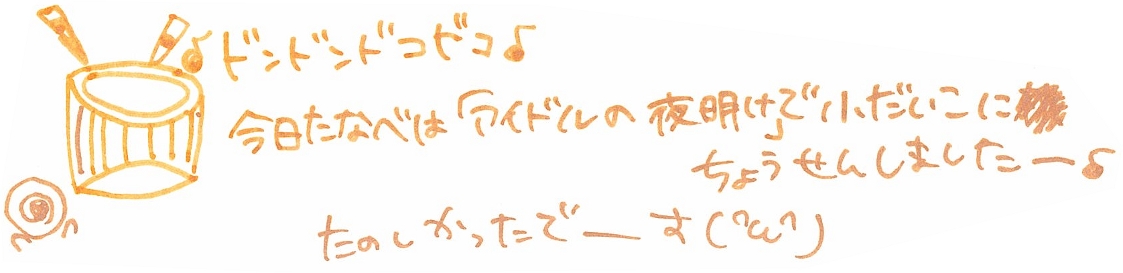 ♪ドンドンドコドコ♪
今日たなべは「アイドルの夜明け」で小だいこに
ちょうせんしましたー♪
たのしかったでーす(^ω^)